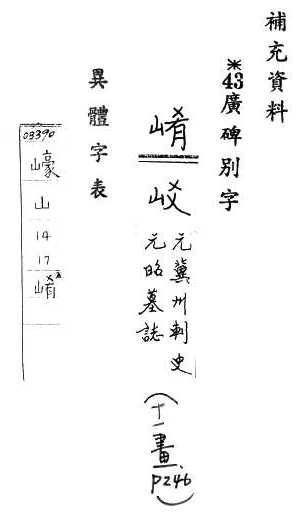 補充資料
*43廣碑別字
崤
㟗
元冀州刺史
元昭墓誌
(十一畫、P246)
異體字表
03390
㠙
山
14
17
崤